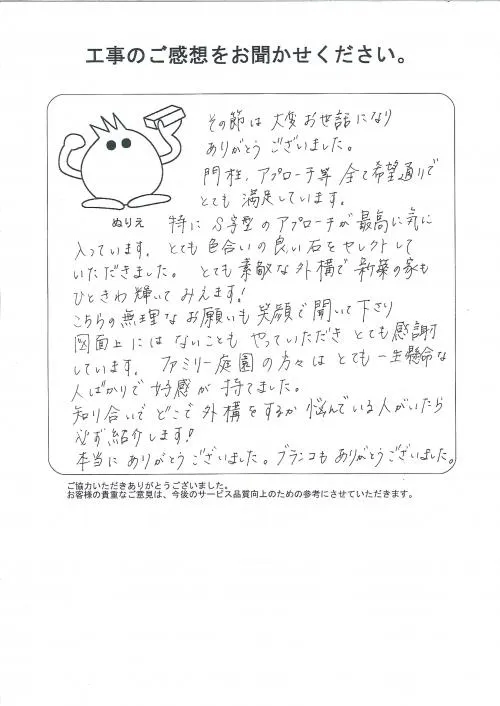 工事のご感想をお聞かせください。
その節は大変お世話になり
ありがとうございました。
門柱、アプローチ等 全て希望通りで
とても満足しています。
ぬりえ
特にS字型のアプローチが最高に気に
入っています。とても色合いの良い石をセレクトして
いただきました。とても素敵な外構で新築の家も
ひときわ輝いてみえます!
こちらの無理なお願いも笑顔で聞いて下さり
図面上にはないこともやっていただきとても感謝
しています。ファミリー庭園の方々はとても一生懸命な
人ばかりで好感が持てました。
知り合いでどこで外構をするか悩んでいる人がいたら
必ず紹介します!
本当にありがとうございました。ブランコもありがとうございました。
ご協力いただきありがとうございました。
お客様の貴重なご意見は、今後のサービス品質向上のための参考にさせていただきます。